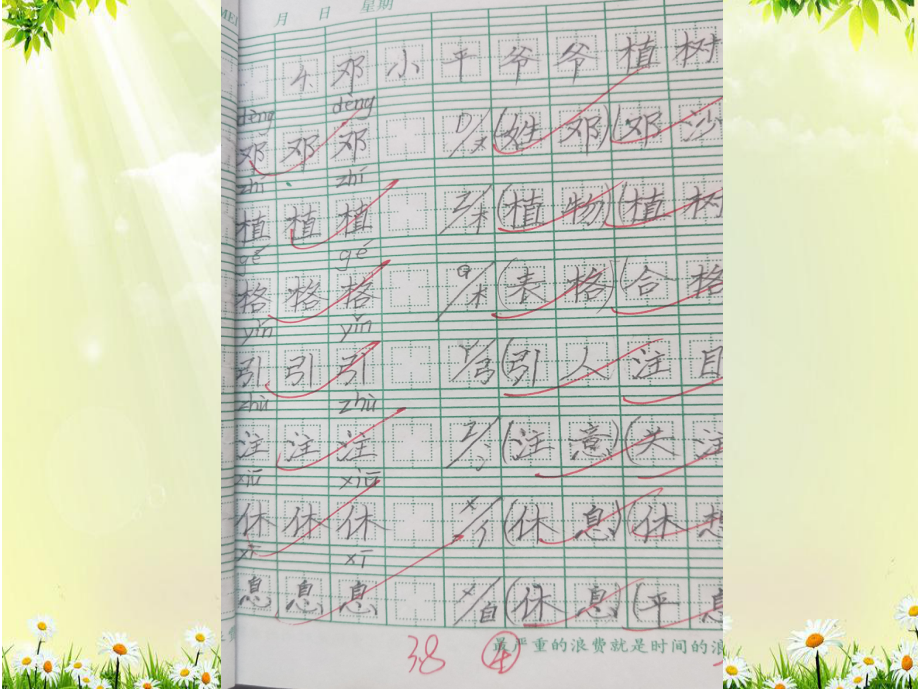 月 日 星期
4、邓小平爷爷植树
dèng dèng
邓 邓 邓 D/又 (姓邓)(邓沙
zhí zhí
植 植 植 Z/木 (植物)(植树
gé gé
格 格 格 G/木 (表格)(合格
yǐn yǐn
引 引 引 Y/弓 (引人注目
zhù zhù
注 注 注 Z/氵 (注意)(关注
xiū xiū
休 休 休 X/亻 (休息)(休想
xī xī
息 息 息 X/自 (休息)(平息
最严重的浪费就是时间的浪
38